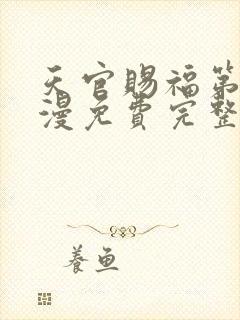 天官赐福第
漫免费完整
养鱼